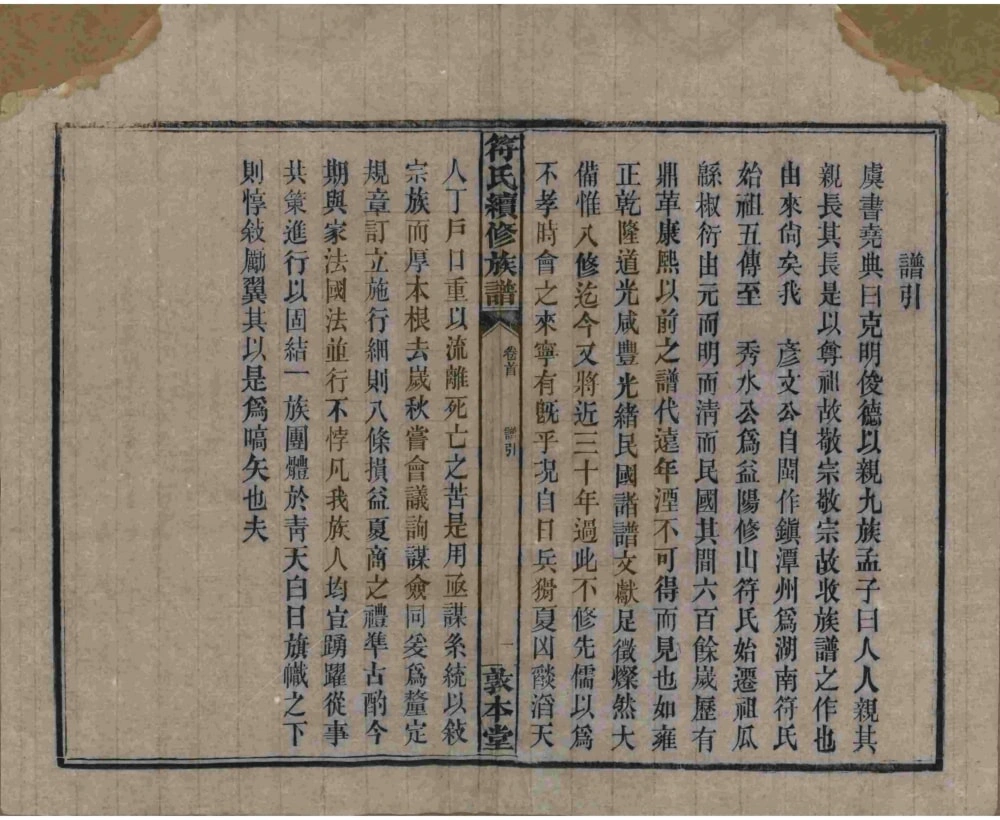 譜引
虞書堯典曰克明俊德以親九族孟子曰人人親其
親長其長是以尊祖故敬宗敬宗故收族譜之作也
由來尙矣我　彥文公自閩作鎭潭州爲湖南符氏
始祖五傳至　秀水公爲益陽修山符氏始遷祖瓜
緜椒衍由元而明而淸而民國其間六百餘嵗歷有
鼎革康熙以前之譜代遠年湮不可得而見也如雍
正乾隆道光咸豐光緒民國諸譜文獻足徵燦然大
備惟八修迄今又將近三十年過此不修先儒以爲
不孝時會之來寧有旣乎况自日兵猾夏凶燄滔天
符氏續修族譜
卷首
譜引
一
敦本堂
人丁戶口重以流離死亡之苦是用亟謀系統以敍
宗族而厚本根去嵗秋嘗會議詢謀僉同爰爲釐定
規章訂立施行細則八條損益夏商之禮準古酌今
期與家法國法並行不悖凡我族人均宜踴躍從事
共策進行以固結一族團體於靑天白日旗幟之下
則惇敍勵翼其以是爲嚆矢也夫